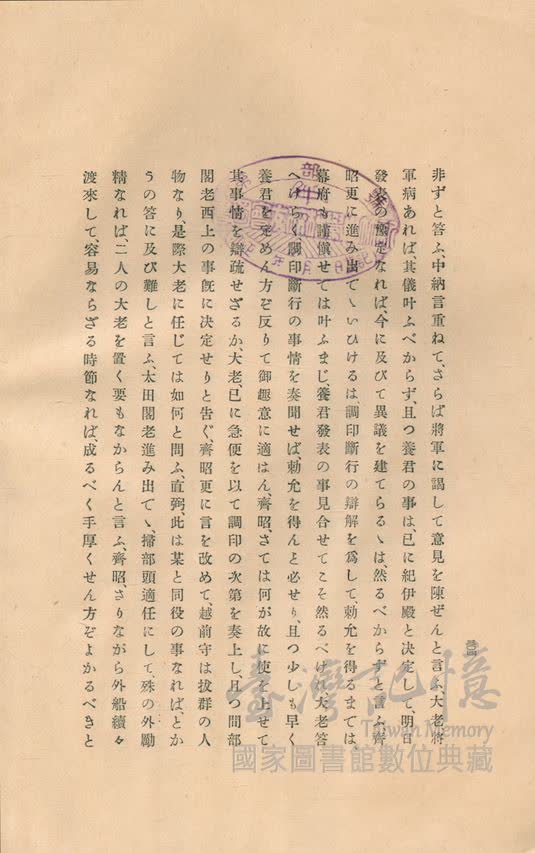 非ずと答ふ、中納言重ねて、さらば將軍に謁して意見を陳ぜんと言ふ、大老將
軍病あれば、其儀叶ふべからず、且つ養君の事は、已に紀伊殿と決定して、明日
發表の豫定なれば、今に及びて異議を建てらるゝは、然るべからずと言ふ、齊
昭更に進み出でゝいひけるは、調印斷行の辯解を爲して、勅允を得るまでは、
幕府も謹愼せでは叶ふまじ、養君發表の事見合せてこそ然るべけれ、大老答
へけらく、調印斷行の事情を奏聞せば、勅允を得んと必せり、且つ少しも早く
養君を定めん方ぞ反りて御趣意に適はん、齊昭、さては何が故に使を上せて
其事情を辯疏せざるか、大老、已に急便を以て調印の次第を奏上し、且つ間部
閣老西上の事旣に決定せりと告ぐ、齊昭更に言を改めて、越前守は拔群の人
物なり、是際大老に任じては如何と問ふ、直弼、此は某と同役の事なれば、とか
うの答に及び難しと言ふ、太田閣老進み出でゝ、掃部頭適任にして、殊の外勵
精なれば、二人の大老を置く要もなからんと言ふ、齊昭、さりながら外船續々
渡來して、容易ならざる時節なれば、成るべく手厚くせん方ぞよかるべきと
臺灣記憶
Taiwan Memory
國家圖書館數位典藏